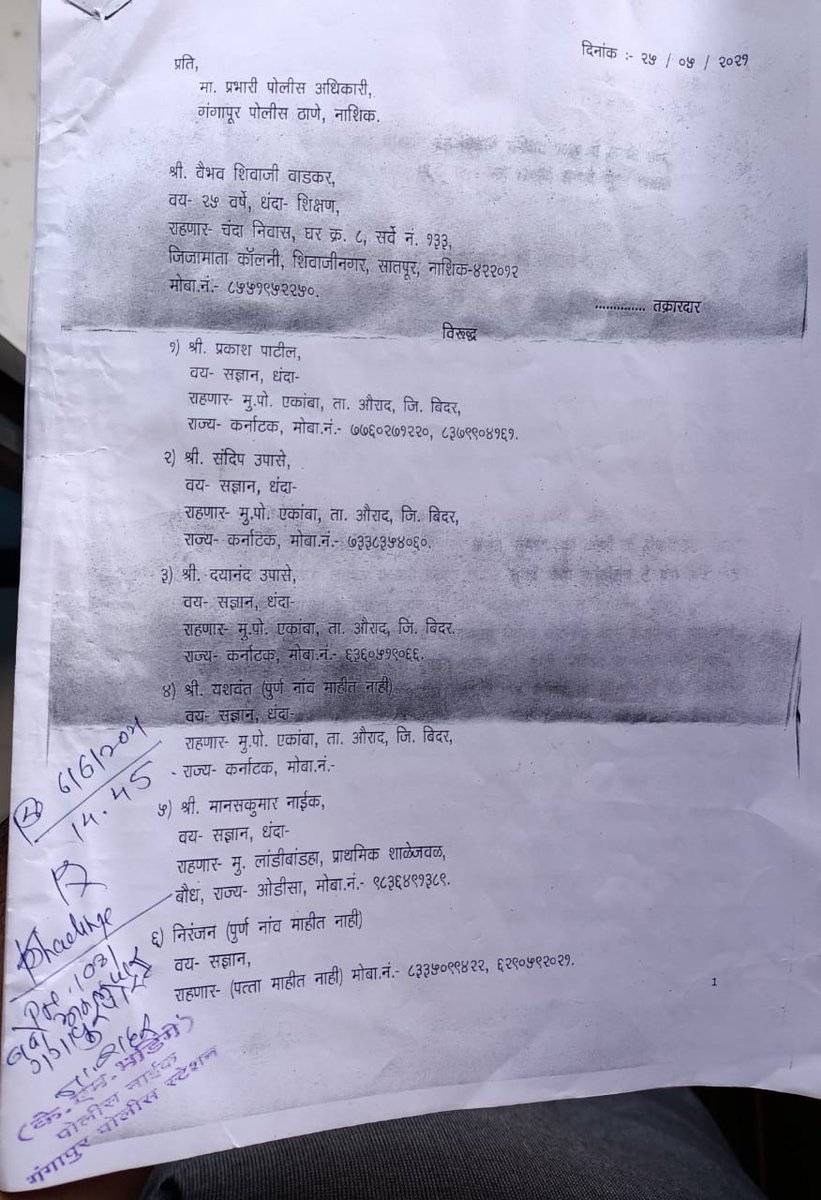 दिनांक :- २५ / ०५ / २०२१
प्रति,
मा. प्रभारी पोलीस अधिकारी,
गंगापूर पोलीस ठाणे, नाशिक.
श्री. वैभव शिवाजी वाडकर,
वय- २५ वर्षे, धंदा- शिक्षण,
राहणार- चंदा निवास, घर क्र. ८, सर्वे नं. १३३,
जिजामाता कॉलनी, शिवाजीनगर, सातपूर, नाशिक-४२२०१२
मोबा.नं.- ८५५१९५२२५०.
.............. तक्रारदार
विरूद्ध
१) श्री. प्रकाश पाटील,
वय- सज्ञान, धंदा-
राहणार- मु.पो. एकांबा, ता. औराद, जि. बिदर,
राज्य- कर्नाटक, मोबा.नं.- ७७६०२७१२२०, ८३७९९०४१६१.
२) श्री. संदिप उपासे,
वय- सज्ञान, धंदा-
राहणार- मु.पो. एकांबा, ता. औराद, जि. बिदर,
राज्य- कर्नाटक, मोबा.नं.- ७३३८३५४०६०.
३) श्री. दयानंद उपासे,
वय- सज्ञान, धंदा-
राहणार- मु.पो. एकांबा, ता. औराद, जि. बिदर.
राज्य- कर्नाटक, मोबा.नं.- ६३६०५१९०६६.
४) श्री. यशवंत (पुर्ण नांव माहीत नाही)
वय- सज्ञान, धंदा-
राहणार- मु.पो. एकांबा, ता. औराद, जि. बिदर,
राज्य- कर्नाटक, मोबा.नं.-
५) श्री. मानसकुमार नाईक,
वय- सज्ञान, धंदा-
राहणार- मु. लांडीबांडहा, प्राथमिक शाळेजवळ,
बौध, राज्य- ओडीसा, मोबा.नं.- ९८३६४९१३८९.
६) निरंजन (पुर्ण नांव माहीत नाही)
वय- सज्ञान,
राहणार- (पत्ता माहीत नाही) मोबा.नं.- ८३३५०९९४२२, ६२९०५९२०२१.
1
14.45
(के. एम. भडिंगे)
पोलीस नाईक
गंगापूर पोलीस स्टेशन